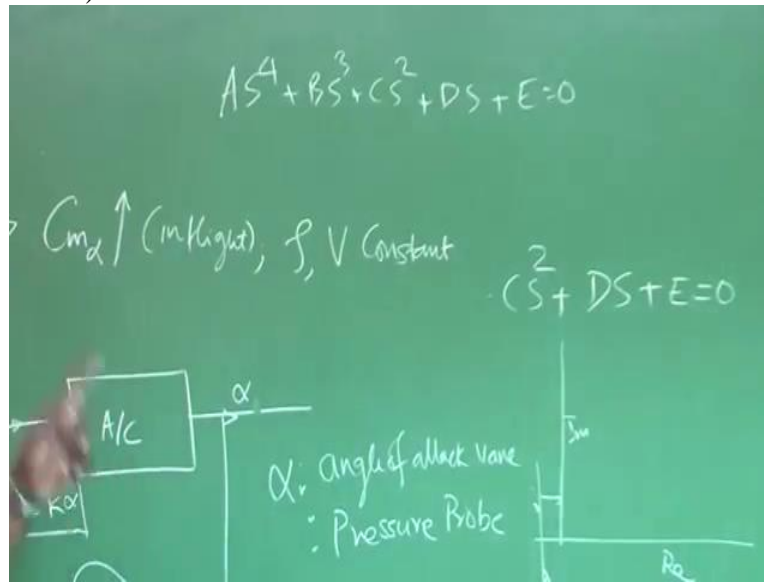 AS⁴ + BS³ + CS² + DS + E = 0
Cmα ↑ (in flight), ρ, V Constant
CS² + DS + E = 0
α
A/C
Im
α : angle of attack vane
Kα
: Pressure Probe
Re